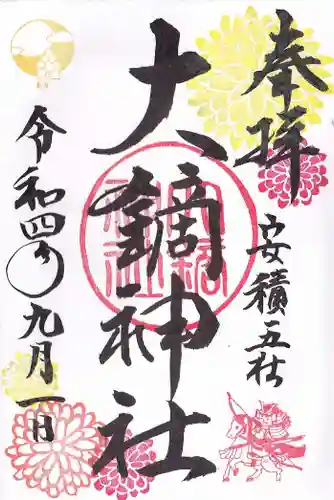 奉拝
安積五社
大鏑神社
令和四年九月一日